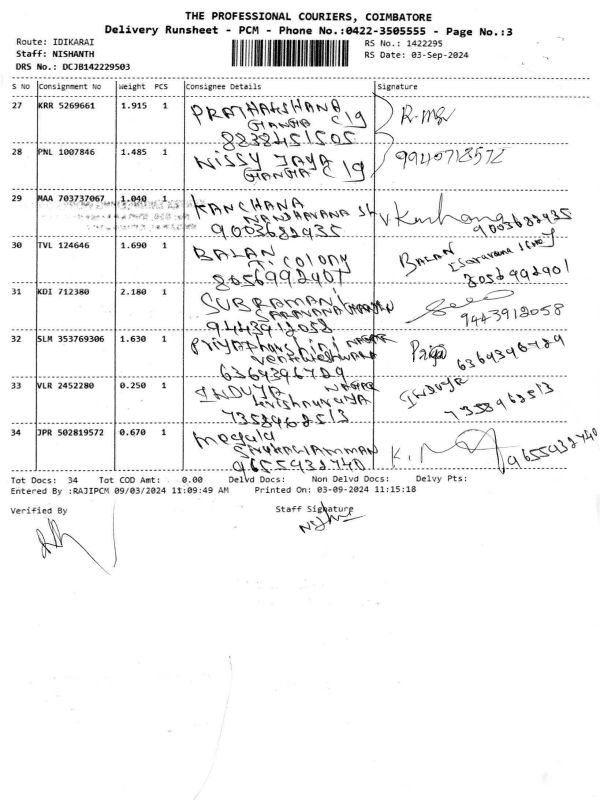 THE PROFESSIONAL COURIERS, COIMBATORE
Delivery Runsheet - PCM - Phone No.:0422-3505555 - Page No.:3
Route: IDIKARAI
RS No.: 1422295
Staff: NISHANTH
RS Date: 03-Sep-2024
DRS No.: DCJB142229503
S No Consignment No Weight PCS Consignee Details Signature
27 KRR 5269661 1.915 1 PRATHAKSHANA
GANGA C 19
8838451505
28 PNL 1007846 1.485 1 NISSY JAYA 9940718572
GANGA C 19
29 MAA 703737067 1.040 1 KANCHANA
NANDHAVANA
9003682935 9003682935
30 TVL 124646 1.690 1 BALAN BALAN
Ti colony
8056992901 8056992901
31 KDI 712380 2.180 1 SUBRAMANI
9443912058 9443912058
32 SLM 353769306 1.630 1 NAGAR Priya
Venkateshwara
6369396789 6369396789
33 VLR 2452280 0.250 1 INDUJA NAGAR INDUJA
7358962513 7358962513
34 JPR 502819572 0.670 1 Megala
9655932740 9655932740
Tot Docs: 34 Tot COD Amt: 0.00 Delvd Docs: Non Delvd Docs: Delvy Pts:
Entered By :RAJIPCM 09/03/2024 11:09:49 AM Printed On: 03-09-2024 11:15:18
Verified By Staff Signature